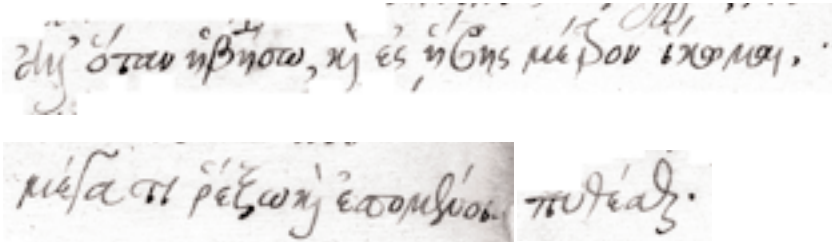 ἀλλ' ὅταν ἡβήσω, καὶ ἐς ἥβης μέτρον ἵκωμαι.
μέγα τι ῥέξω καὶ ἐσσομένοισι πυθέσθαι.